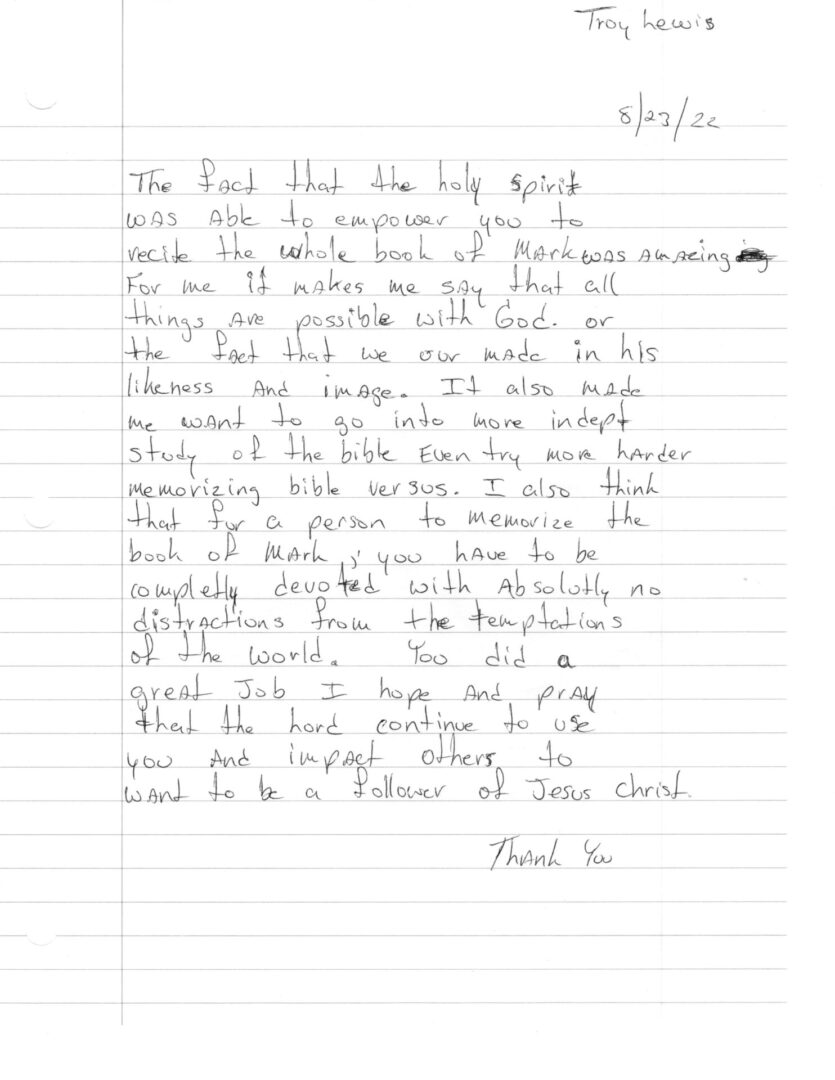 Troy Lewis
8/23/22
The fact that the holy spirit
was able to empower you to
recite the whole book of Mark was amazing
For me it makes me say that all
things are possible with God. or
the fact that we our made in his
likeness and image. It also made
me want to go into more indept
study of the bible Even try more harder
memorizing bible versus. I also think
that for a person to memorize the
book of Mark, you have to be
completly devoted with absolutly no
distractions from the temptations
of the world. You did a
great Job I hope and pray
that the Lord continue to use
you and impact others to
want to be a follower of Jesus Christ.
Thank You